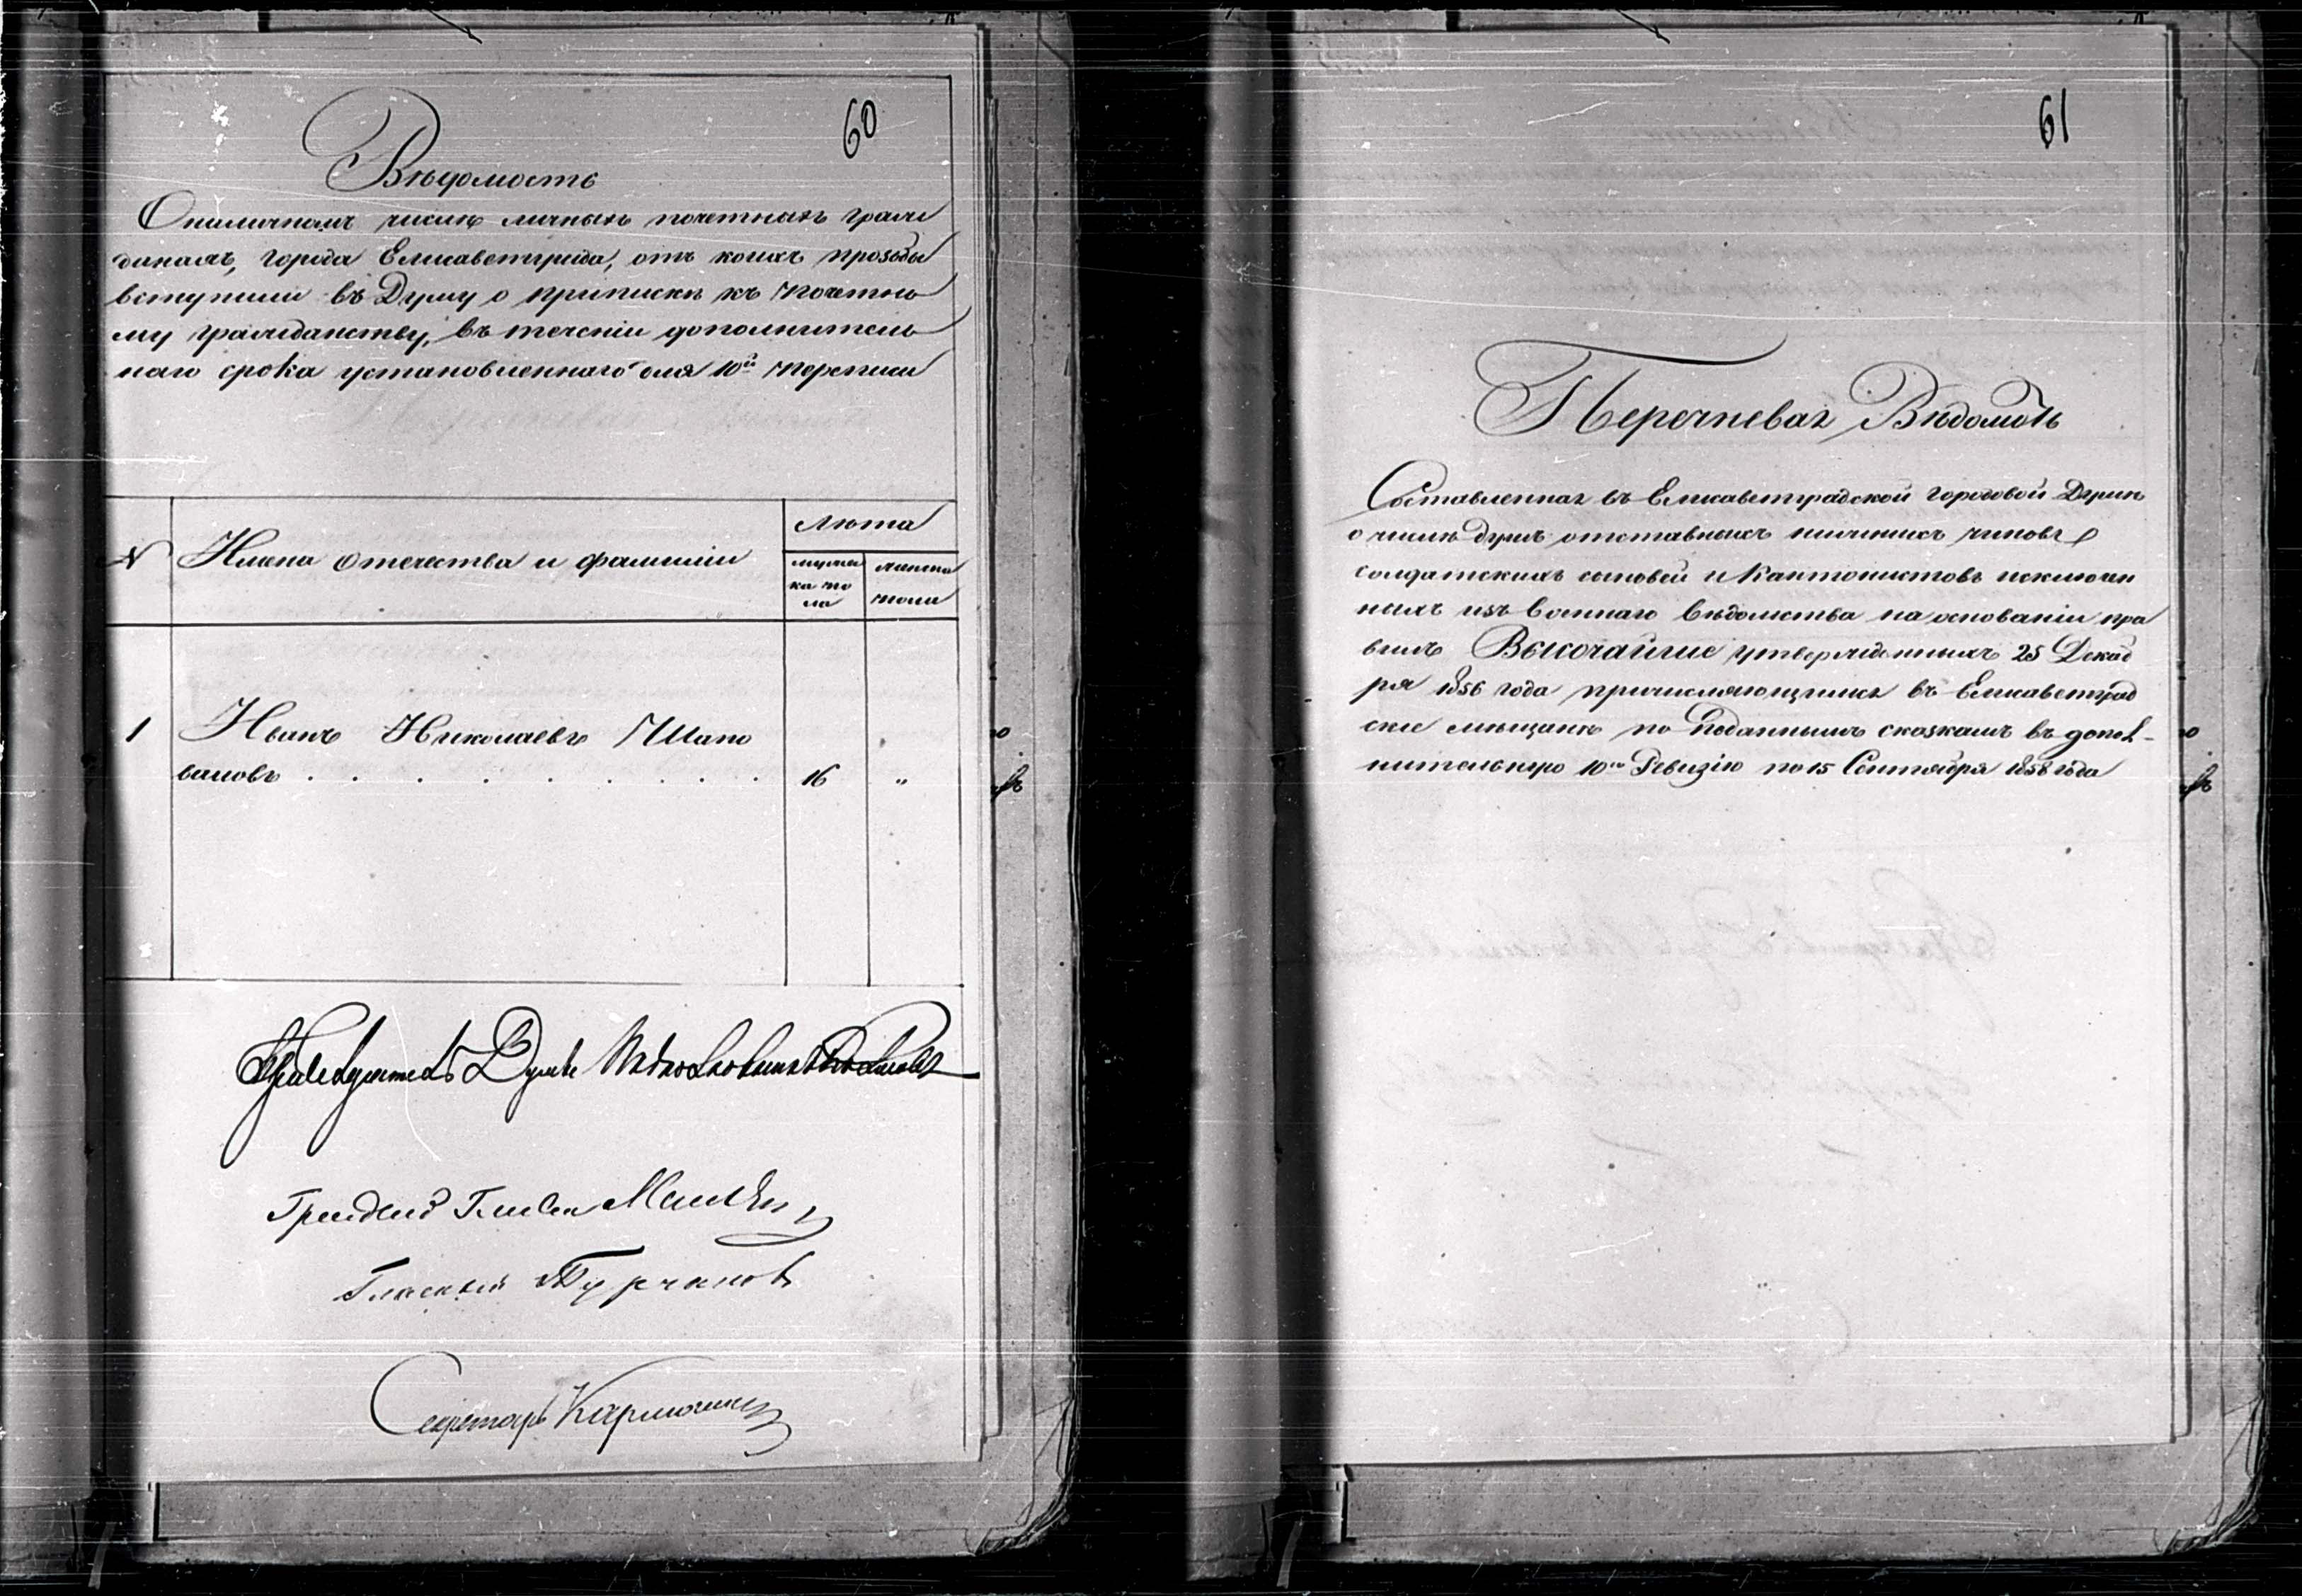 60
Вѣдомость
О наличномъ числѣ личныхъ почетныхъ граж
данахъ, города Елисаветграда, отъ коихъ прозьбы
вступили въ Думу о припискѣ къ почетно
му гражданству, въ теченіи дополнитель
наго срока установленнаго для 10й переписи
№ Имена отечества и фамиліи
Лѣта
мужеска пола
женска пола
1 Иванъ Николаевъ Шапо
валовъ . . . . . . . . 16 "
Думы
Гласный Турчанов
Секретарь
61
Перечневая Вѣдомость
Составленная въ Елисаветградской городовой Думѣ
о числѣ душъ отставныхъ нижнихъ чиновъ
солдатскихъ сыновей и Кантонистовъ исключен
ныхъ изъ военнаго вѣдомства на основаніи пра
вилъ Высочайше утвержденныхъ 25 Декаб
ря 1856 года причисляющихся въ Елисаветград
ские мѣщане по поданнымъ сказкамъ въ допол-
нительную 10ю Ревизію по 15 Сентября 1858 года